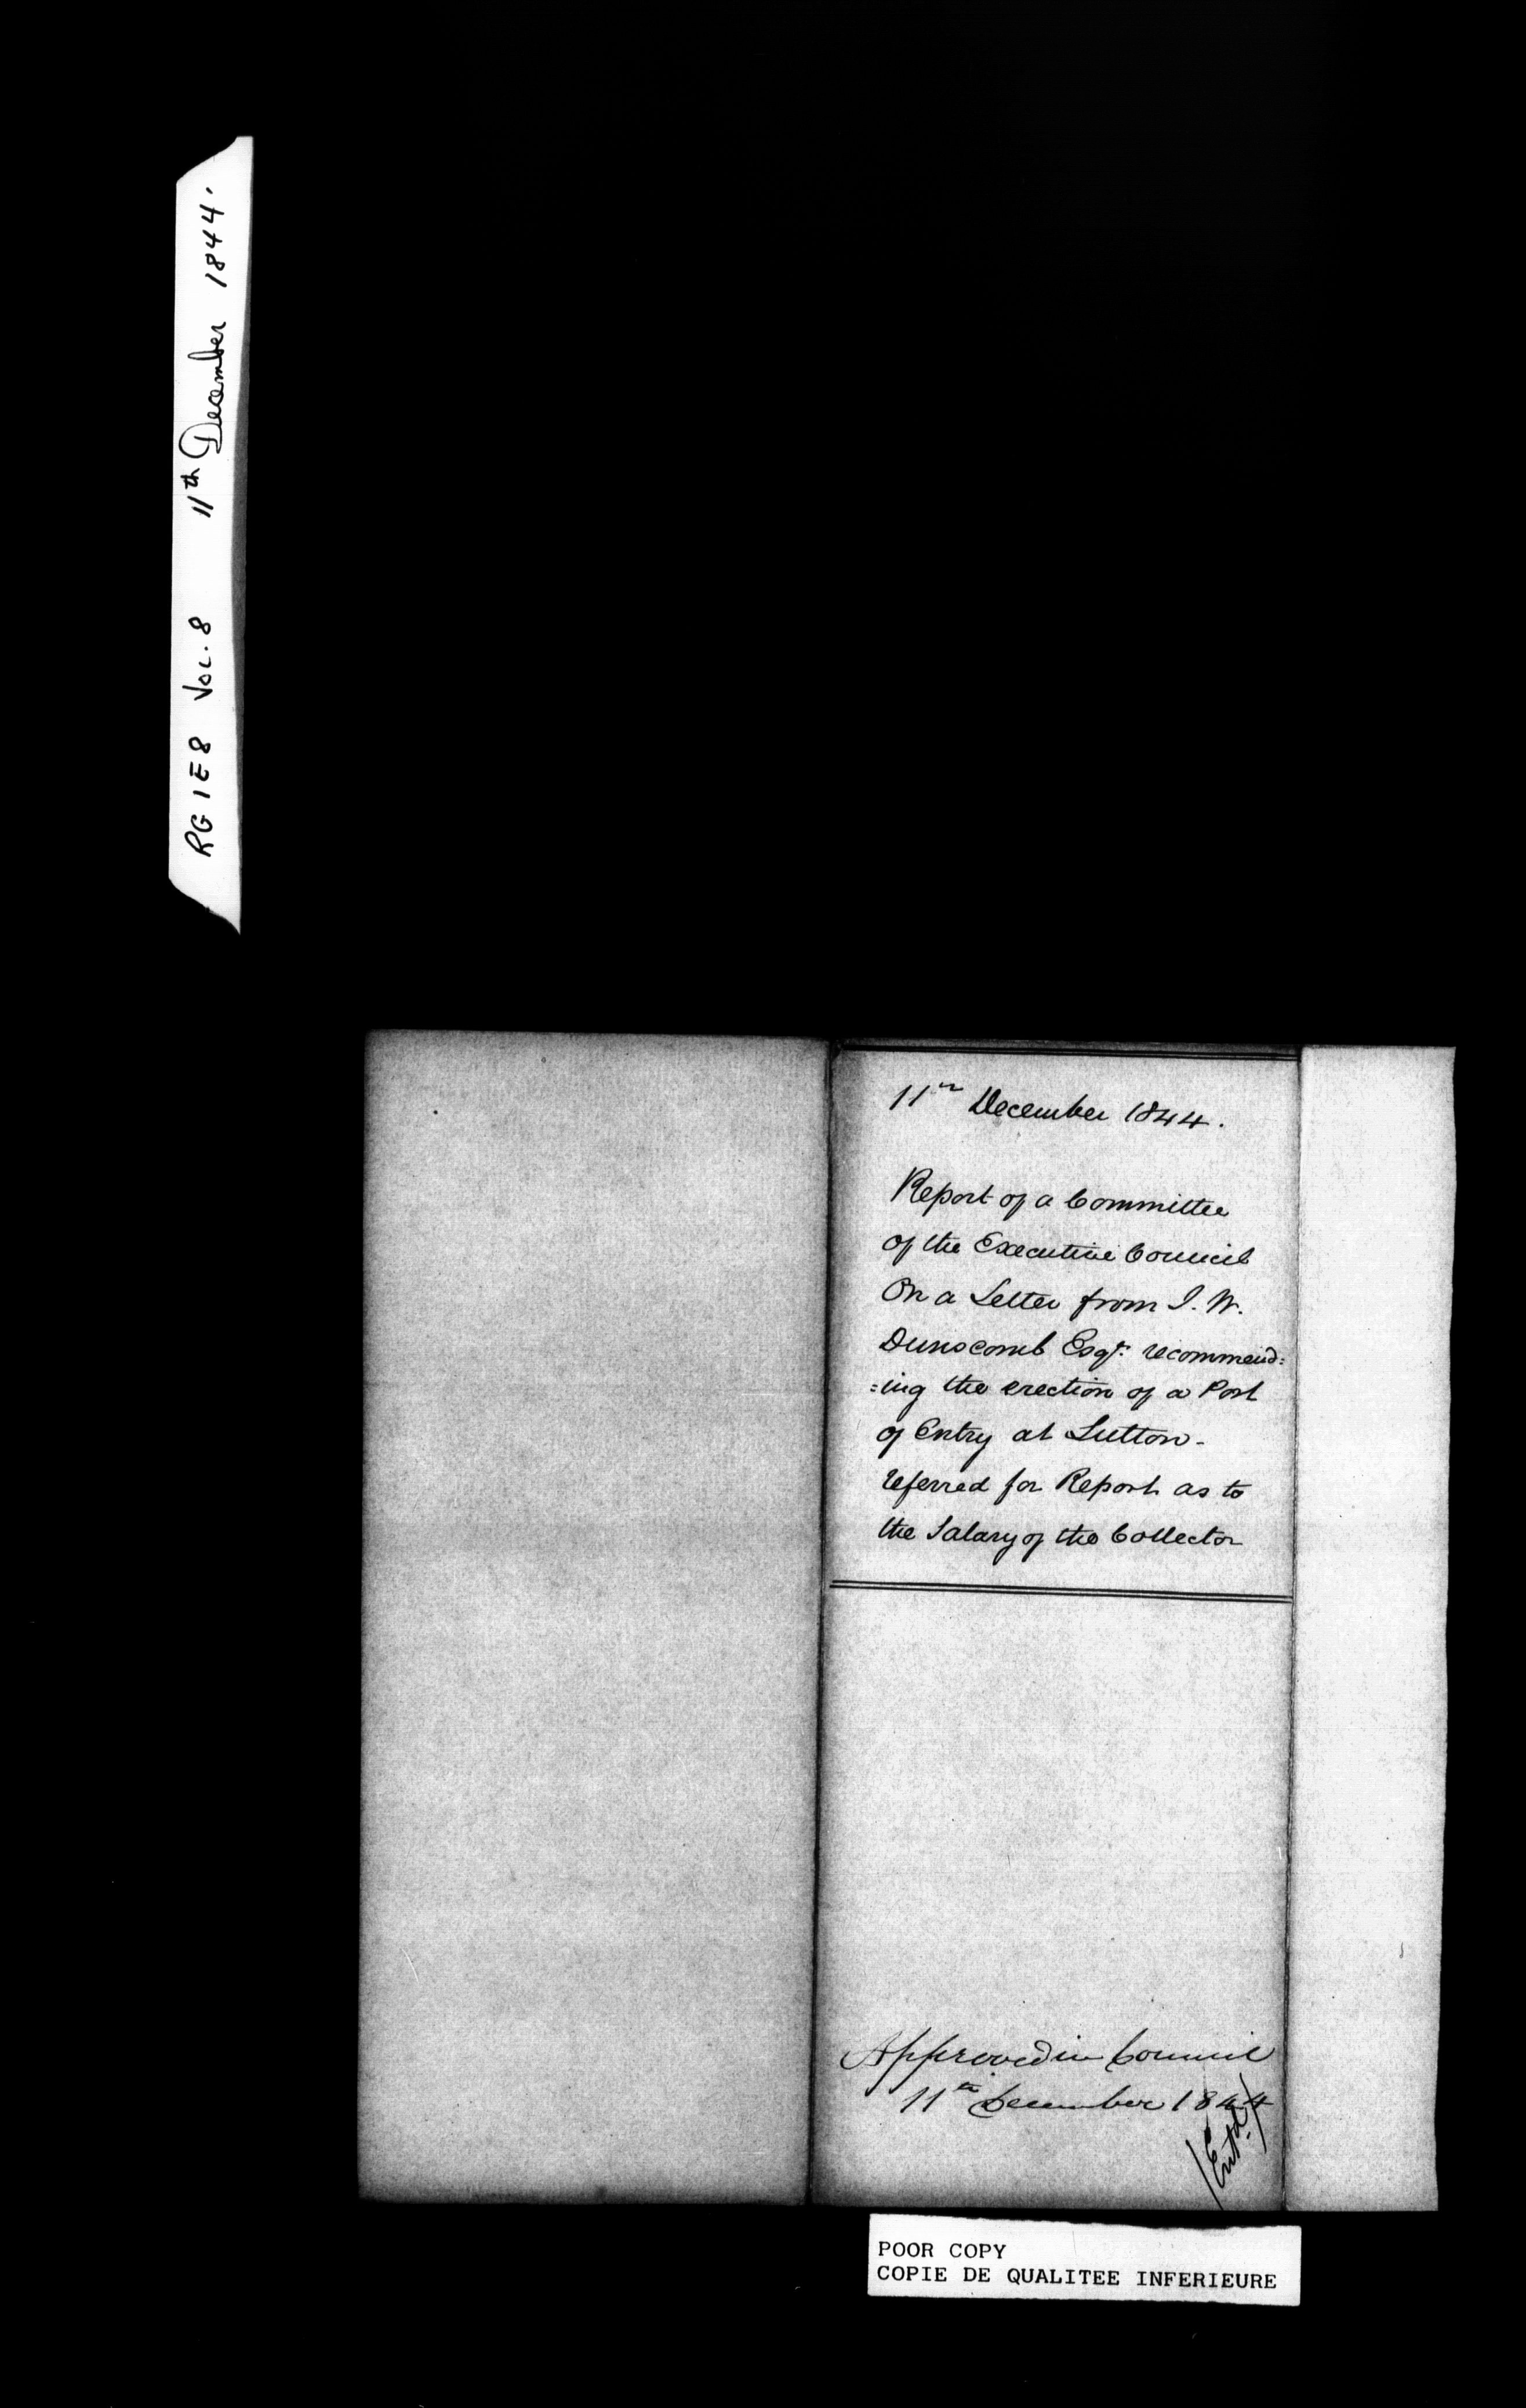 RG 1 E 8 VOL. 8 11th December 1844
11th December 1844.
Report of a Committee
of the Executive Council
On a Letter from J. W.
Dunscomb Esqr. recommend=
=ing the erection of a Port
of Entry at Sutton -
referred for Report as to
the Salary of the Collector
Approved in Council
11th December 1844
/Entd./
POOR COPY
COPIE DE QUALITEE INFERIEURE